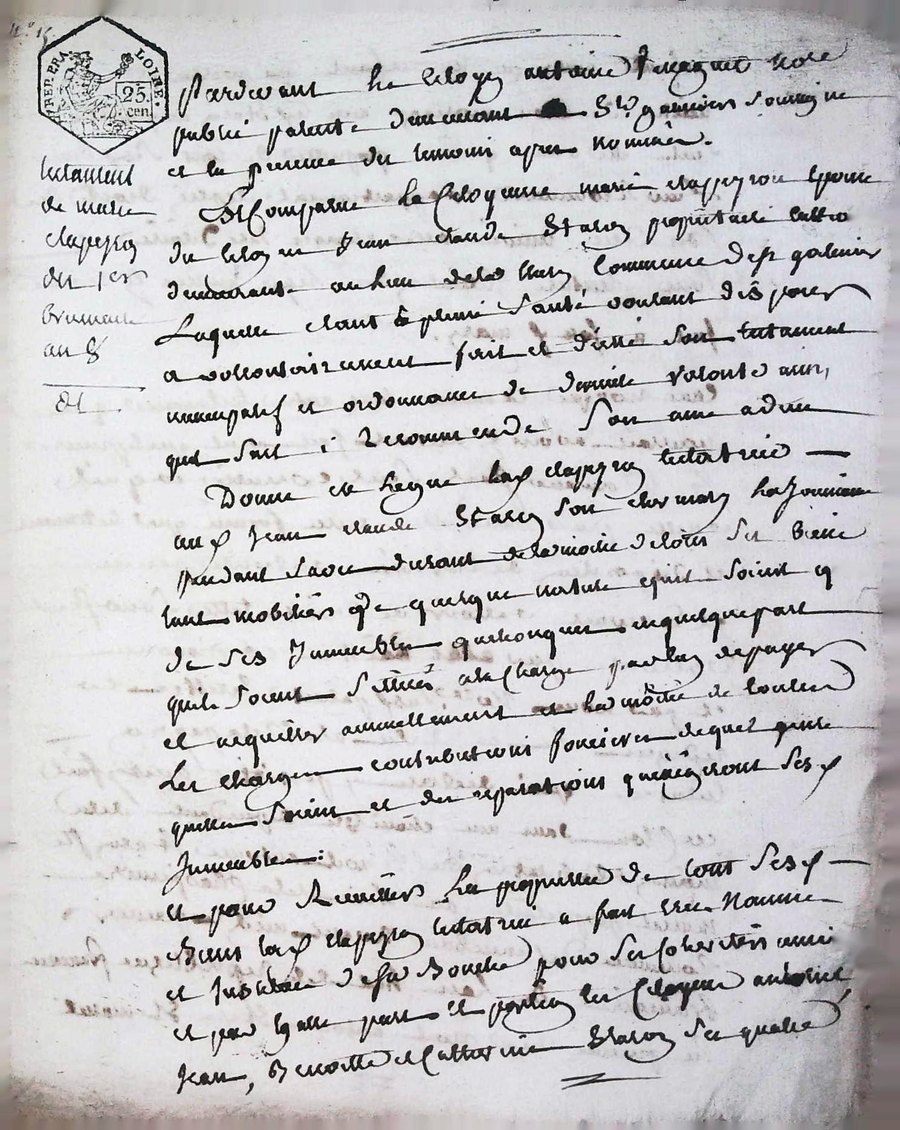 N.° 15
REP. FRA.
LOIRE.
25.
cen.
testament
de marie
clapeyron
du 1er
brumaire
an 8
Pardevant le Citoyen antoine nore
public patenté demeurant St galmier soussigné
et la presence des temoins apres nommés.
Est Comparue La Citoyenne marie clapeyron Epouse
du Citoyen Jean claude Staron propriétaire
demeurante au lieu de Commune de St galmier
Laquelle etant pleine Santé voulant disposer
a vollontairement fait et dicté Son testament
nuncupatif et ordonnance de derniere volonté ainsi
quil Suit ; Recommende Son ame a dieu
Donne et Legue lad clapeyron testatrice
aud Jean claude Staron Son cher mary La Jouissance
pendant Sa vie durant de la moitié de tous Ses Biens
tant mobiliers de quelque nature quil Soient q
de Ses Jmmeubles quelconques en quelque part
quils Soient Sittués a la Charge par luy de payer
et acquitter annuellement et La moitié de toutes
Les charges contributions foncieres de quel genre
quelles Soient et des reparations quexigeront Sesd
Jmmeubles :
et pour La propriété de tout Sesd
Biens lad clapeyron testatrice a fait Nommé
et Jnstitué de Sa Bouche pour Ses Coheritiers
et par egalle part et portion les Citoyens antoine
Jean, Benoitte et Catherine Staron Ses quatre